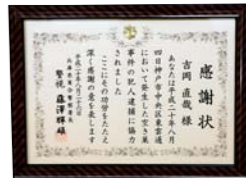 感謝状
吉岡 直哉 様
あなたは平成二十年八月
四日神戸市中央区東雲通
において発生した空き巣
事件の犯人逮捕に協力
されました
ここにその功労をたたえ
深く感謝の意を表します
平成二十年八月二十六日
兵庫県葺合警察署長
警視 藤澤輝雄